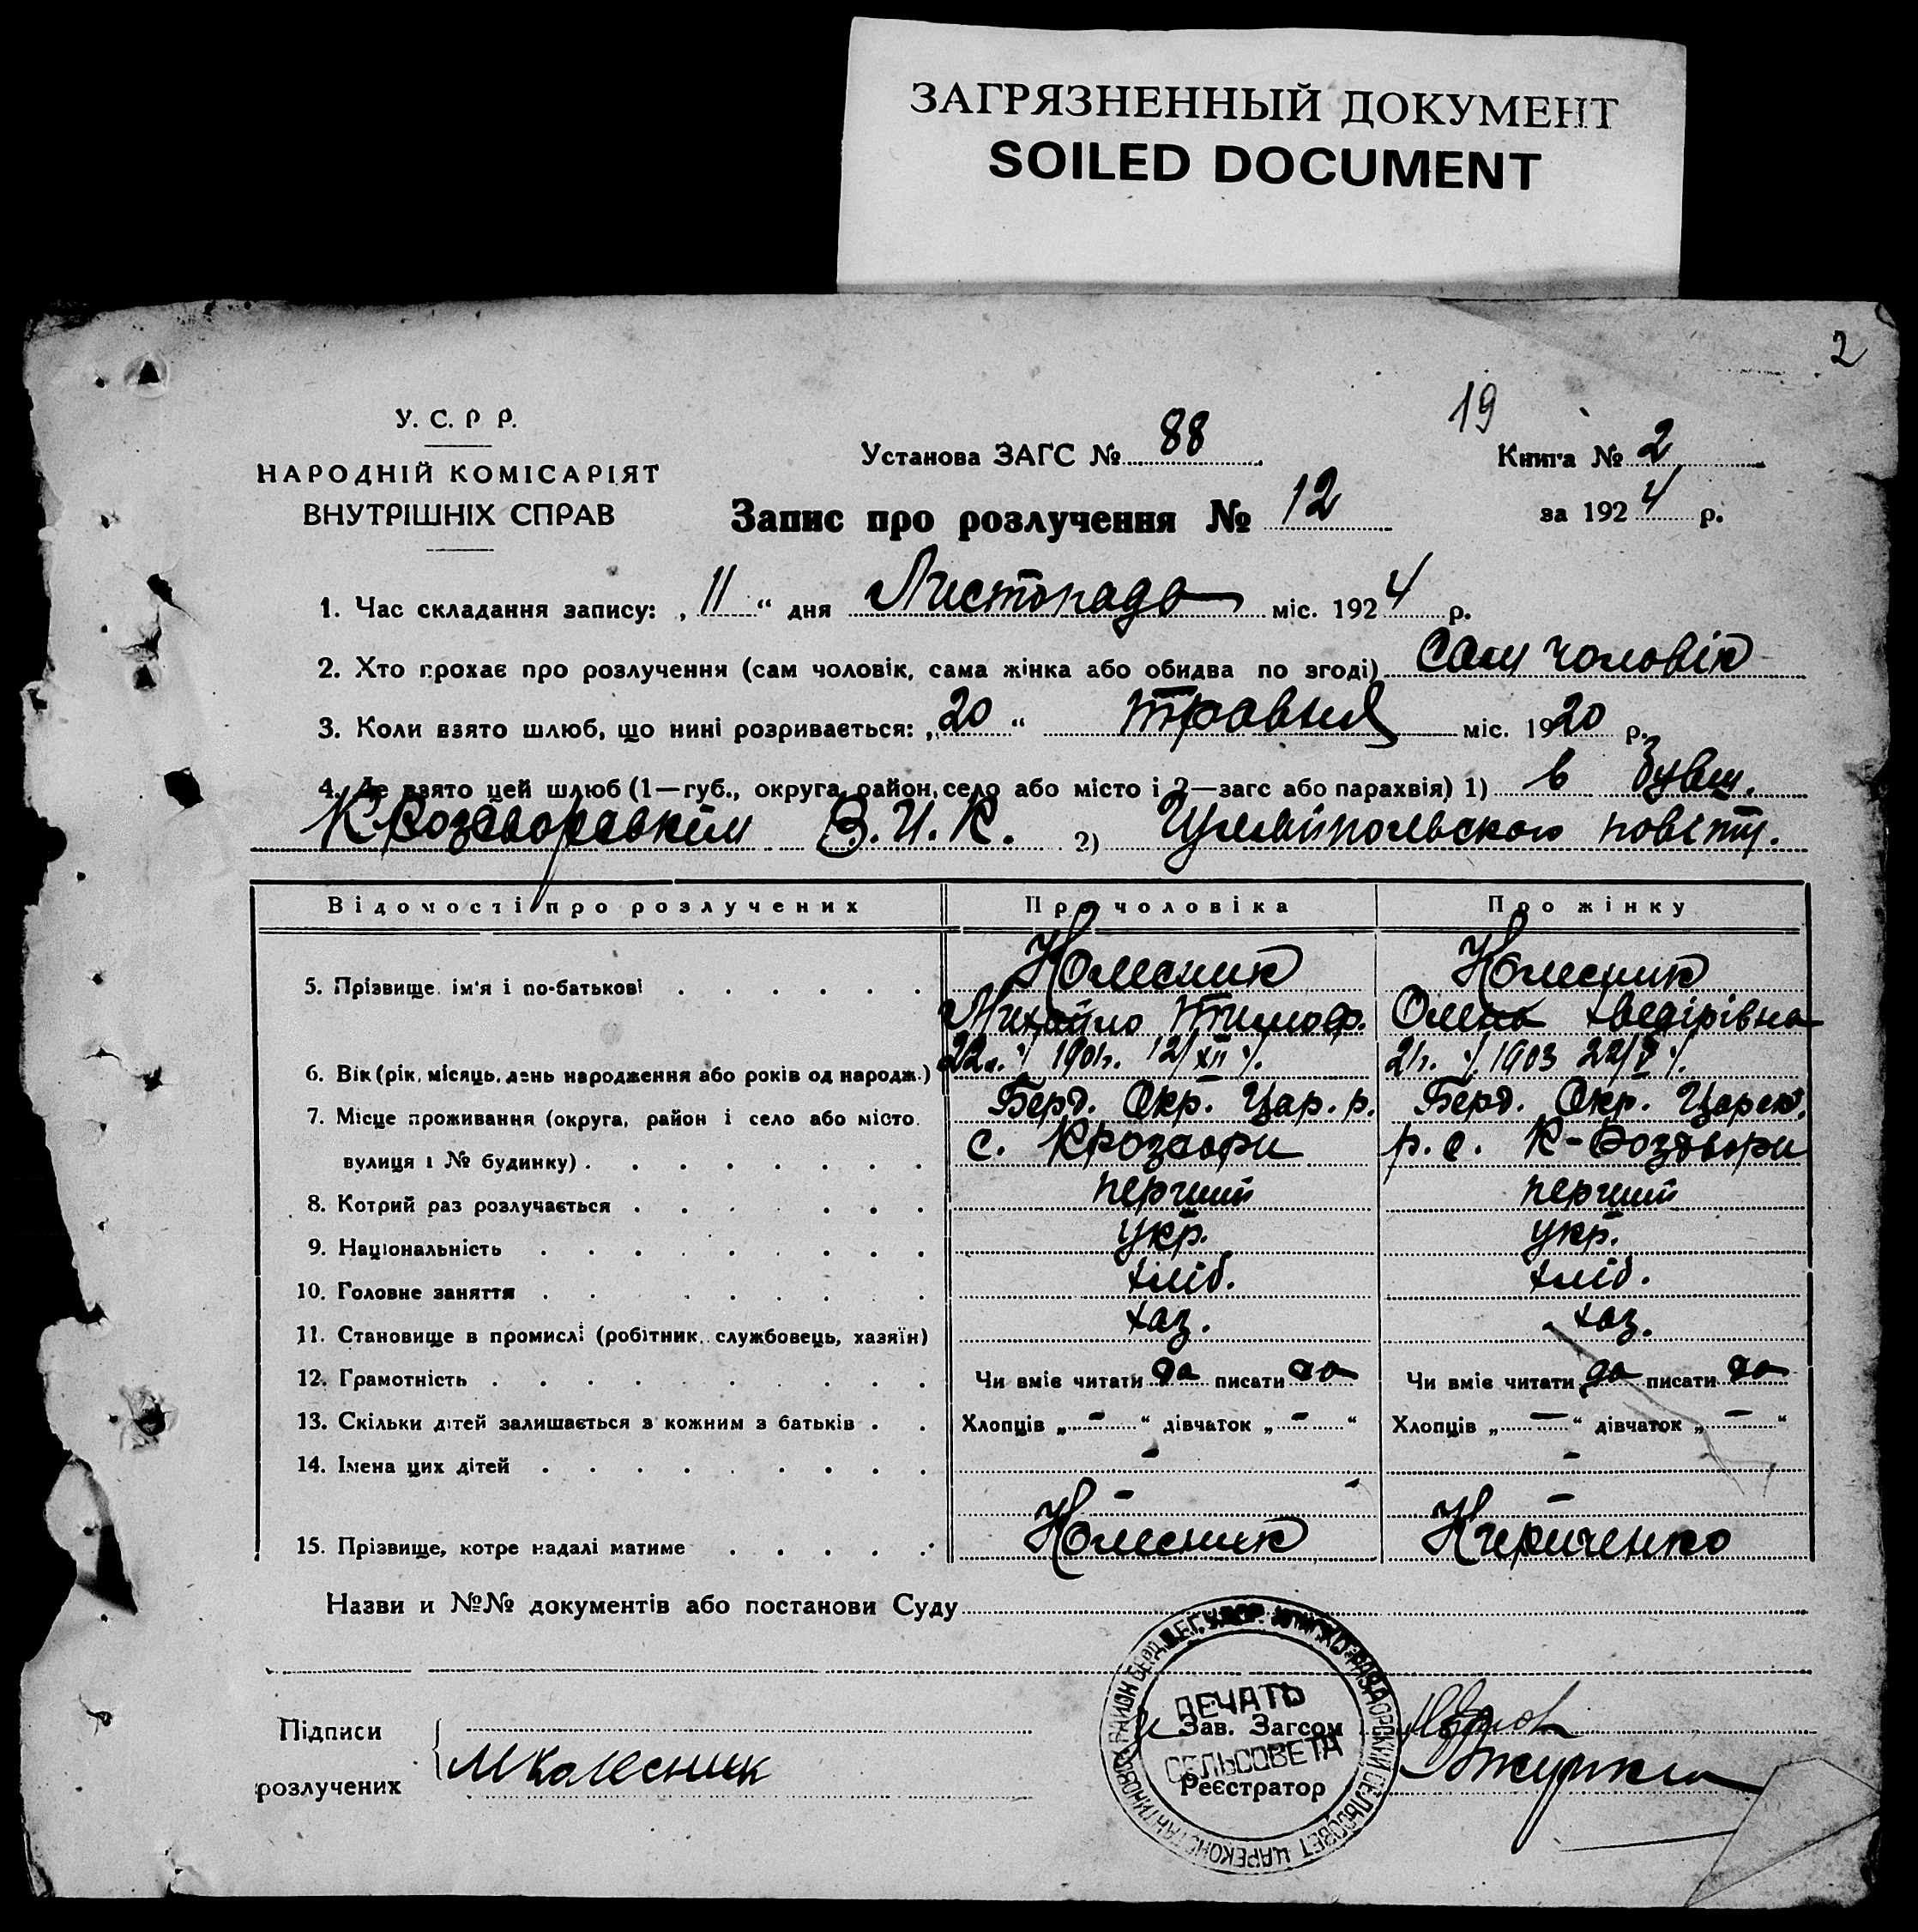 ЗАГРЯЗНЕННЫЙ ДОКУМЕНТ
SOILED DOCUMENT
2
У. С. Р Р.
НАРОДНІЙ КОМІСАРІЯТ
ВНУТРІШНІХ СПРАВ
19
Установа ЗАГС № 88
Книга № 2
Запис про розлучення № 12
за 1924 р.
1. Час складання запису: „11“ дня Листопада міс. 1924 р.
2. Хто прохає про розлучення (сам чоловік, сама жінка або обидва по згоді) Сам чоловік
3. Коли взято шлюб, що нині розривається: „20“ травня міс. 1920 р.
4. Де взято цей шлюб (1—губ., округа, район, село або місто і 2—загс або парахвія) 1) в бувш.
В. И. К. 2) повіту.
Відомості про розлучених
Про чоловіка
Про жінку
5. Прізвище, ім'я і по-батькові
Колесник
Колесник
Михайло Тимоф.
Олена Хведірівна
6. Вік (рік, місяць, день народження або років од народж.)
22 л. 1901 р. 12/XII
21 р. 1903 22/V
7. Місце проживання (округа, район і село або місто,
Берд. Окр. Цар. р.
Берд. Окр. Царек.
вулиця і № будинку)
с. К розвори
р. с. К-Роздори
8. Котрий раз розлучається
перший
перший
9. Національність
укр.
укр.
10. Головне заняття
хліб.
хліб.
11. Становище в промислі (робітник, службовець, хазяїн)
хаз.
хаз.
12. Грамотність
Чи вміє читати да писати да
Чи вміє читати да писати да
13. Скільки дітей залишається з кожним з батьків
Хлопців „ — “ дівчаток „ — “
Хлопців „ — “ дівчаток „ — “
14. Імена цих дітей
-
-
15. Прізвище, котре надалі матиме
Колесник
Кириченко
Назви и №№ документів або постанови Суду
Підписи
розлучених
М Колесник
ПЕЧАТЬ
СЕЛЬСОВЕТА
Зав. Загсом
Реєстратор